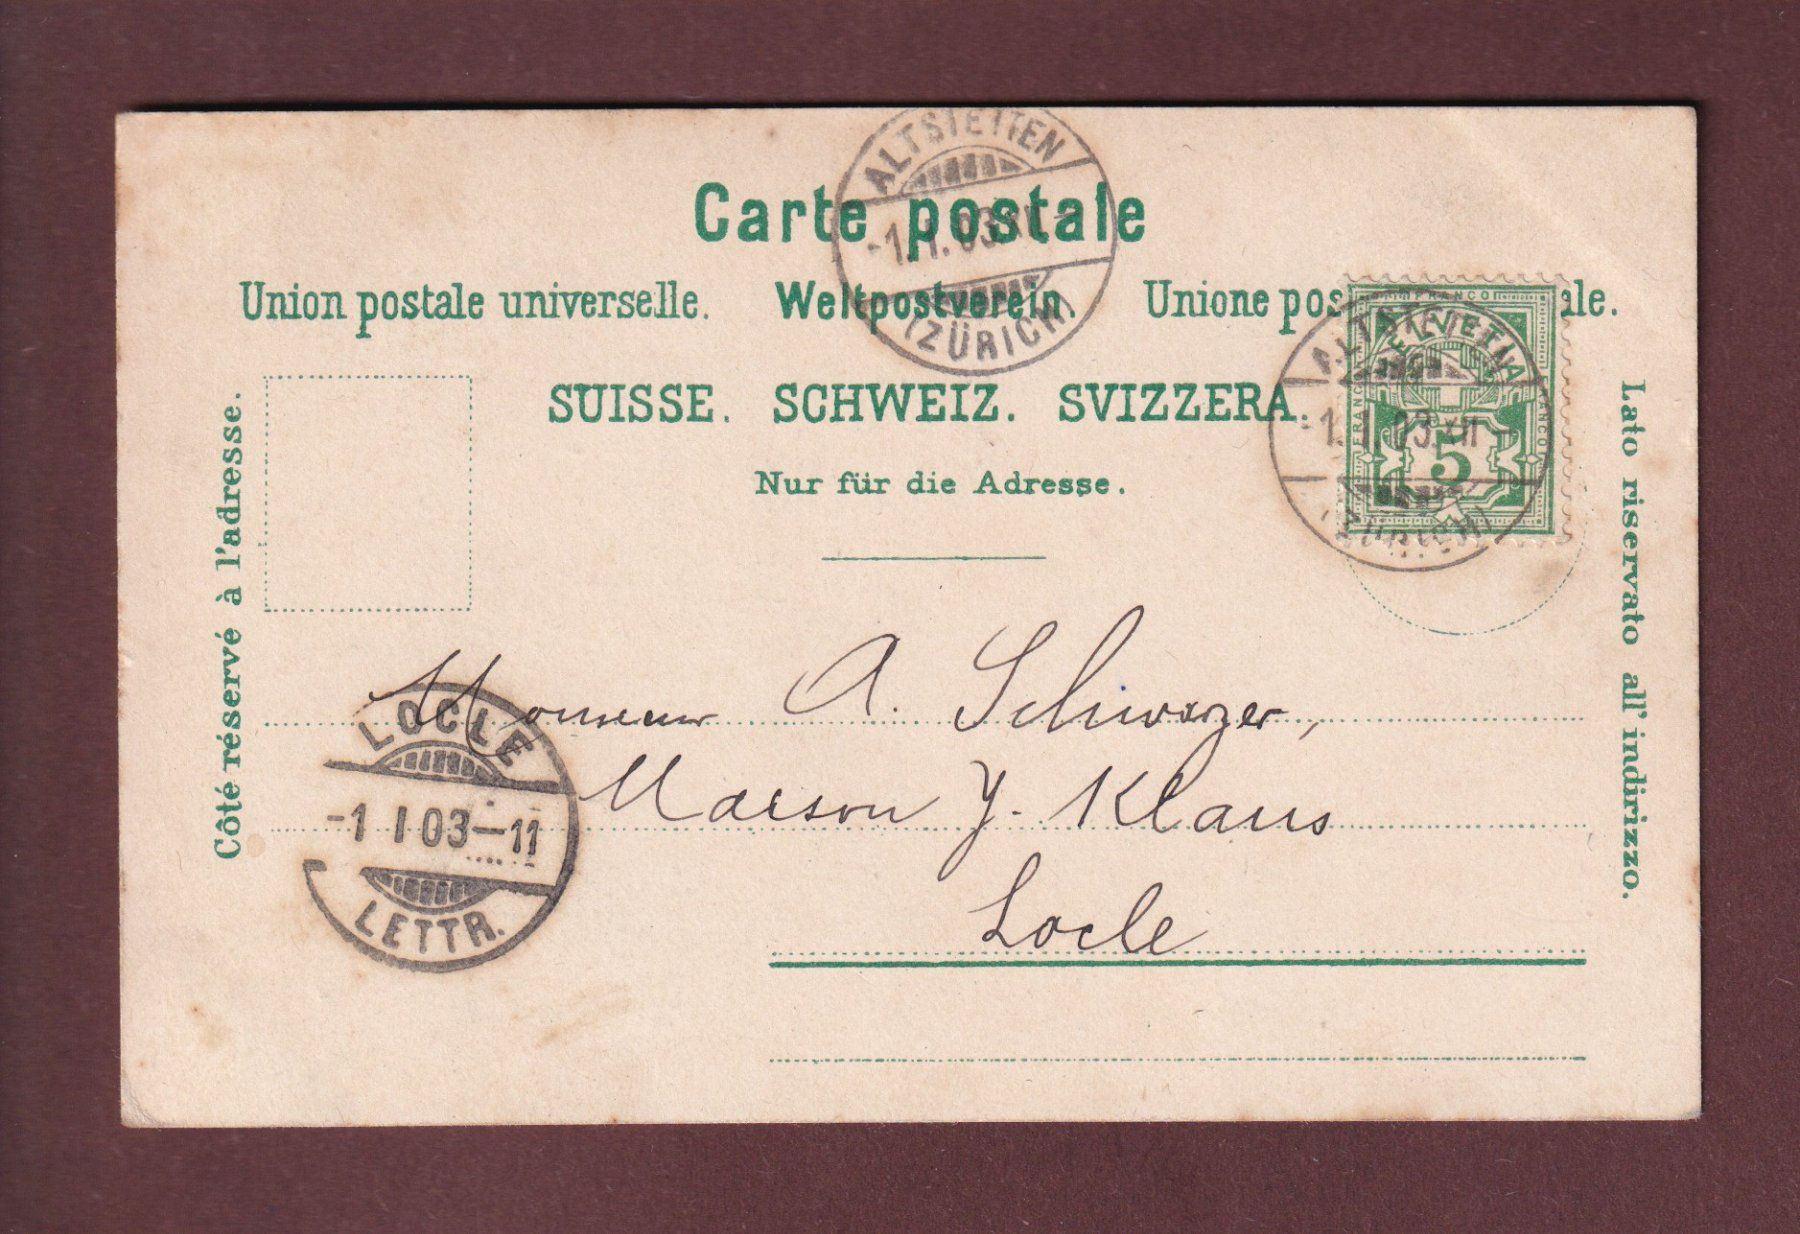 Carte postale
Union postale universelle. Weltpostverein Unione pos ale.
SUISSE. SCHWEIZ. SVIZZERA.
Nur für die Adresse.
Côté réservé à l'adresse.
Lato riservato all'indirizzo.
ALTSTETTEN
-1.I.03.XII-
(ZÜRICH)
FRANCO
HELVETIA
FRANCO
FRANCO
5
ALTSTETTEN
-1.I.03.XII-
(ZÜRICH)
Monsieur A. Schwarzer,
Maison J. Klaus
Locle
LOCLE
-1 I 03-11
LETTR.